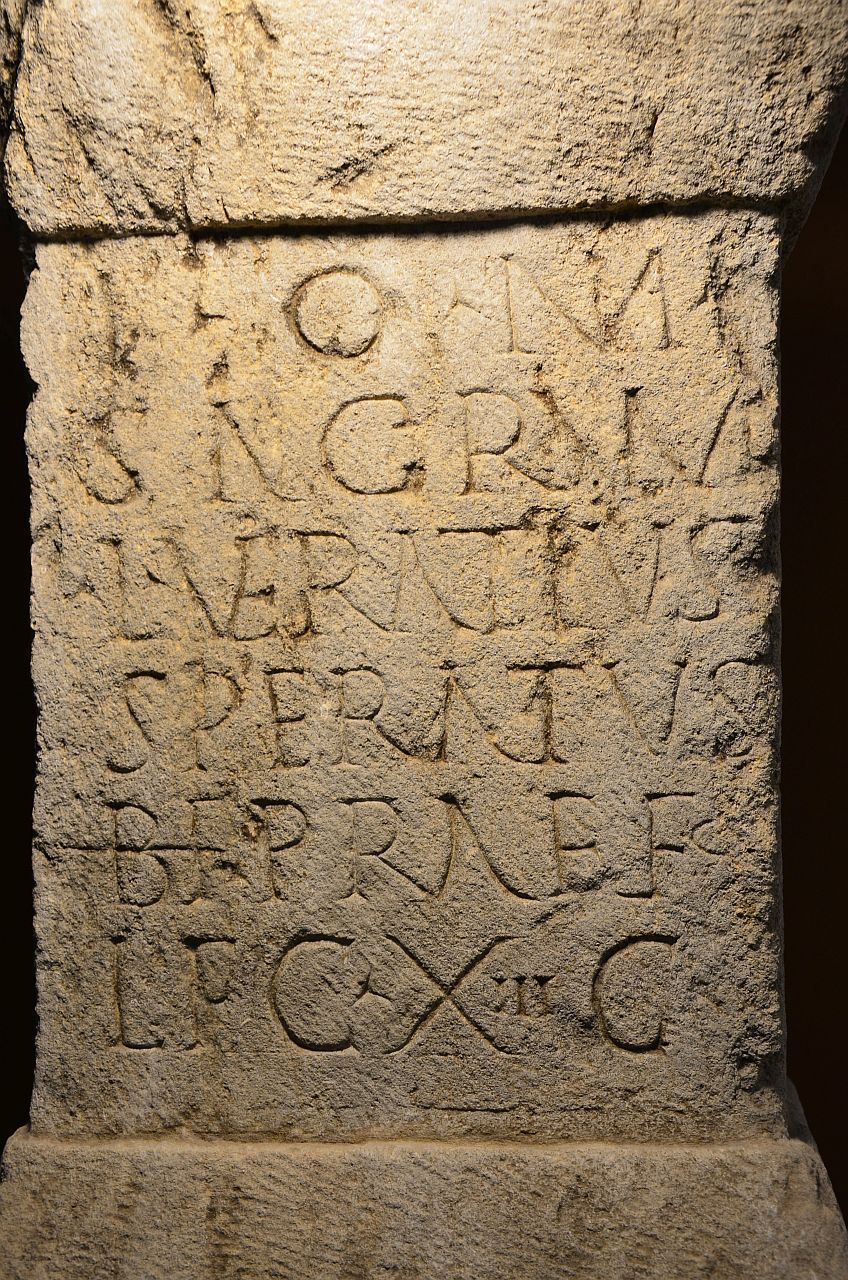 I · O · M ·
SACRVM
L VERATIVS
SPERATVS
BF PRAEF
LEG · XIII G